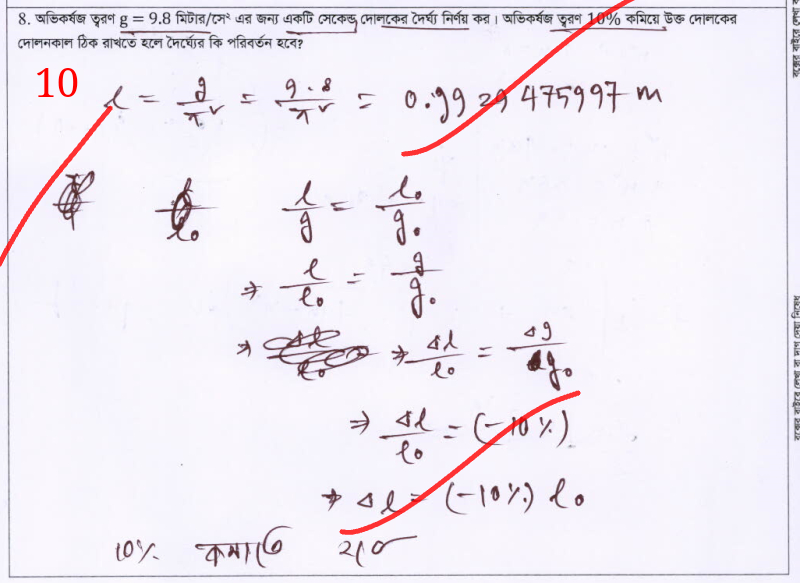 8. অভিকর্ষজ ত্বরণ g = 9.8 মিটার/সে² এর জন্য একটি সেকেন্ড দোলকের দৈর্ঘ্য নির্ণয় কর। অভিকর্ষজ ত্বরণ 10% কমিয়ে উক্ত দোলকের
দোলনকাল ঠিক রাখতে হলে দৈর্ঘ্যের কি পরিবর্তন হবে?
10
l = g/π² = 9.8/π² = 0.9929475997 m
l/g = l₀/g₀
⇒ l/l₀ = g/g₀
⇒ Δl/l₀ = Δg/g₀
⇒ Δl/l₀ = (-10%)
⇒ Δl = (-10%) l₀
10% কমাতে হবে